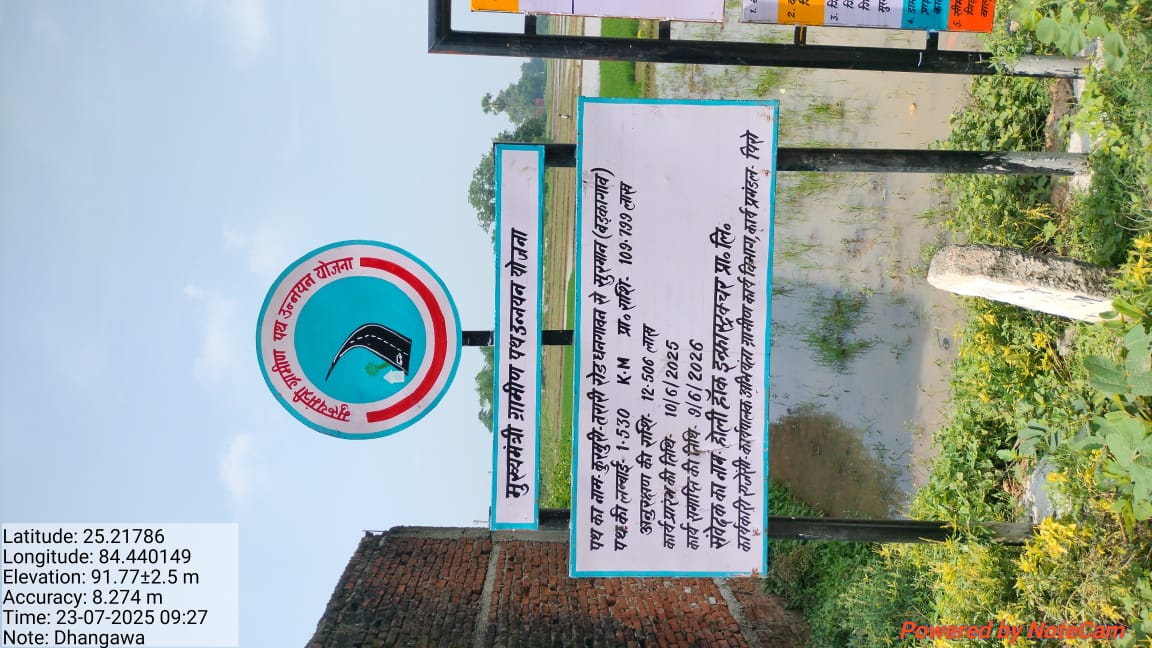 मुख्यमंत्री ग्रामीण पथ उन्नयन योजना
मुख्यमंत्री ग्रामीण पथ उन्नयन योजना
पथ का नाम-
पथ की लम्बाई- 1.530 K.M प्रा० राशि:- 109.799 लाख
अनुरक्षण की राशि:- 12.506 लाख
कार्य प्रारंभ की तिथि:- 10/6/2025
कार्य समाप्ति की तिथि:- 9/6/2026
संवेदक का नाम- होली हॉक इन्फ्रा स्ट्रक्चर प्रा० लि०
कार्यकारी एजेंसी- कार्यपालक अभियंता ग्रामीण कार्य विभाग, कार्य प्रमंडल- पिरो
Latitude: 25.21786
Longitude: 84.440149
Elevation: 91.77±2.5 m
Accuracy: 8.274 m
Time: 23-07-2025 09:27
Note: Dhangawa
Powered by NoteCam